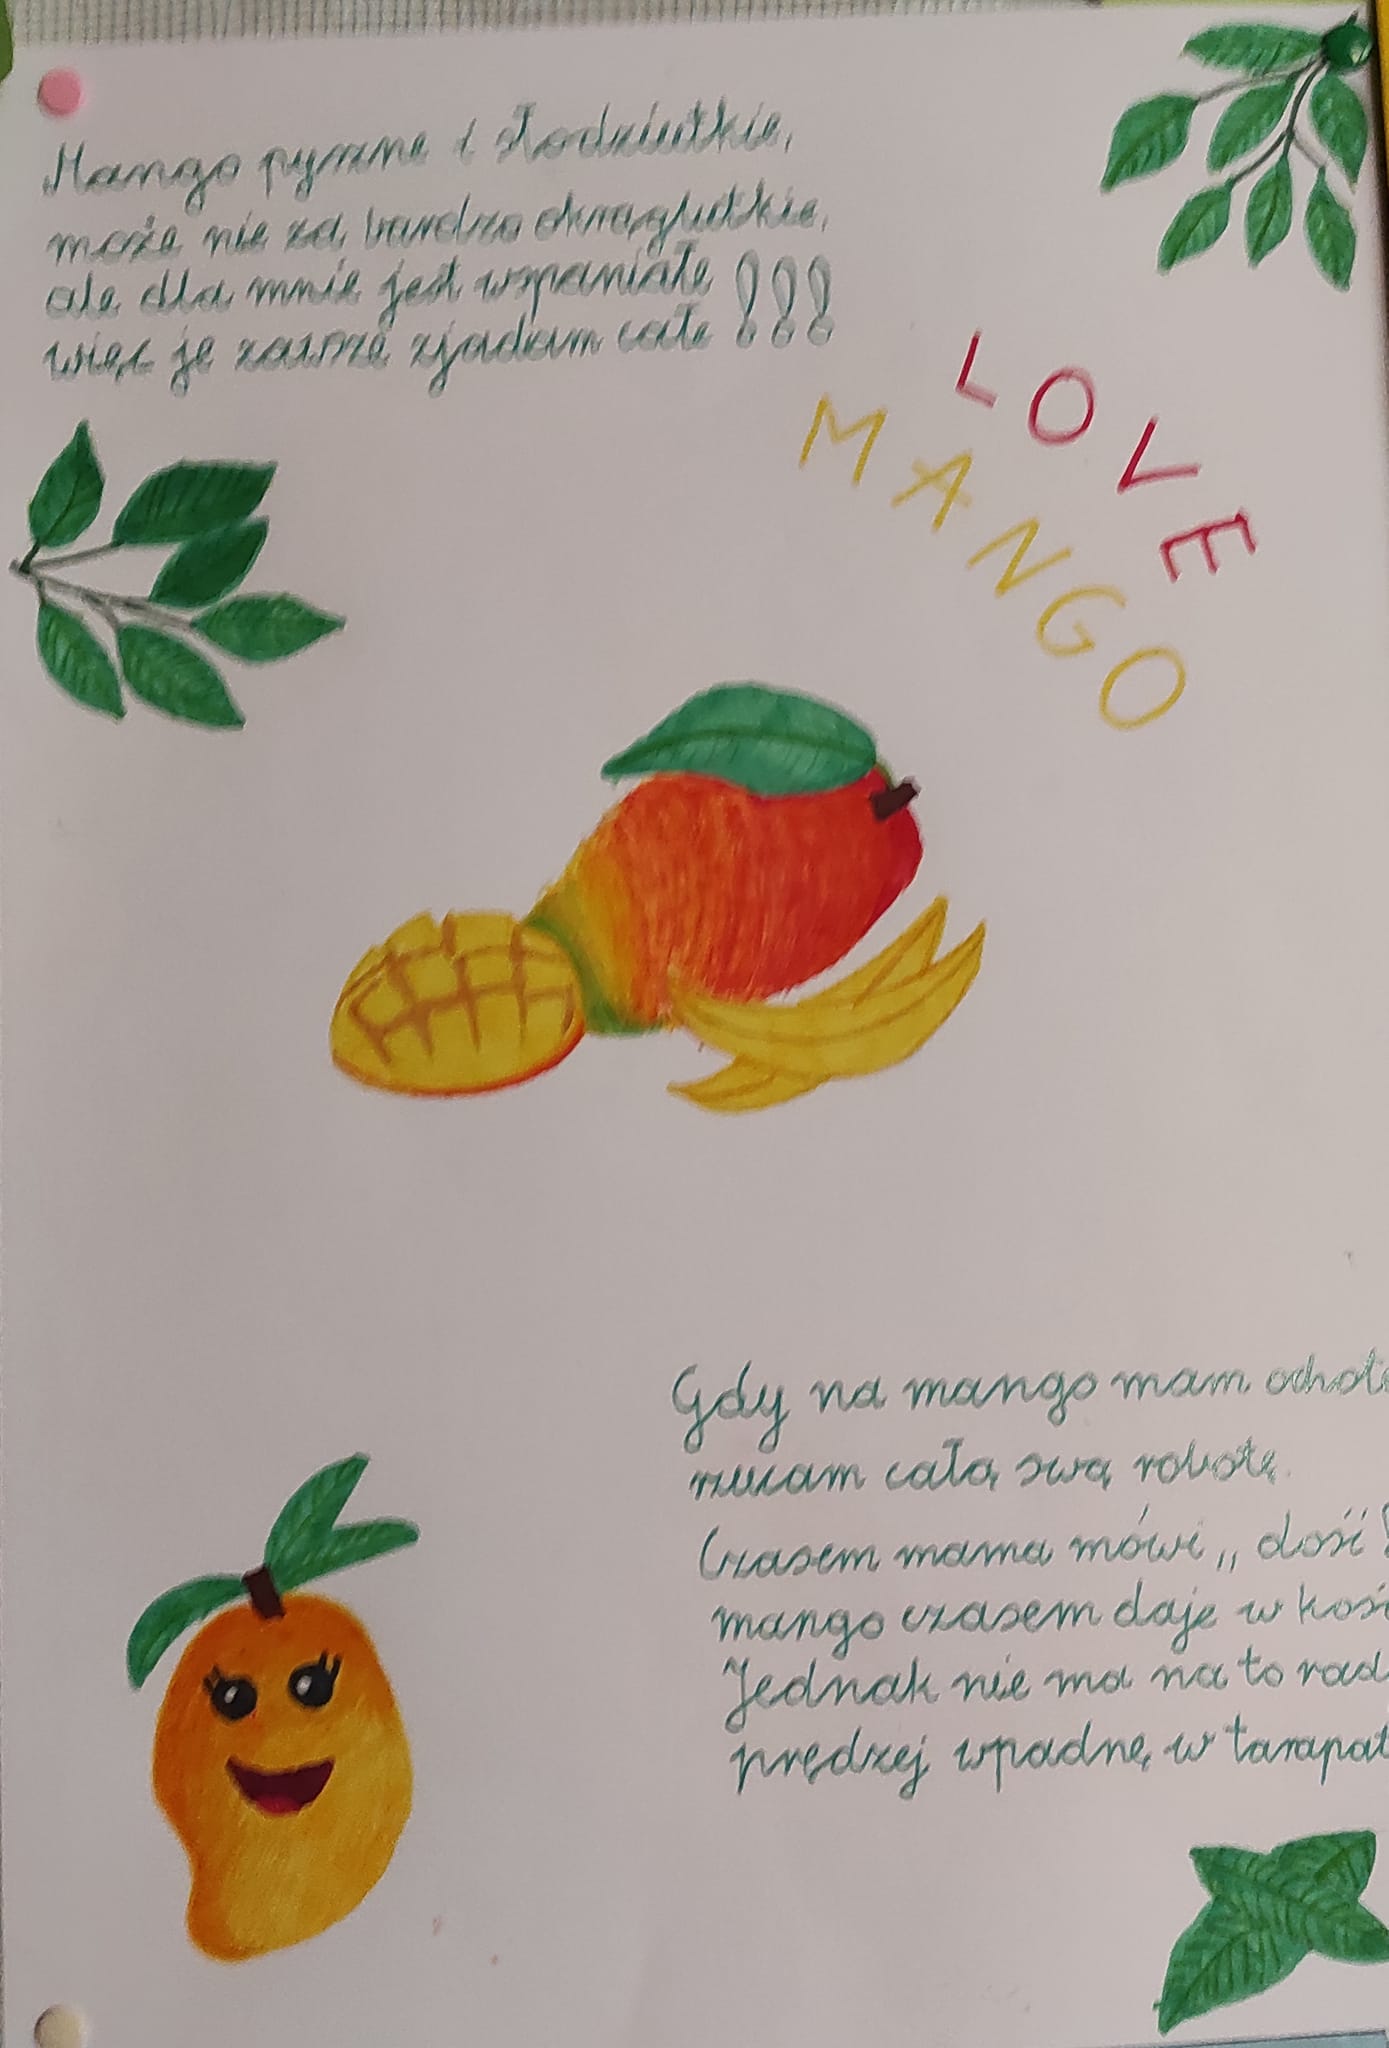 Mango pyszne i słodziutkie,
może nie za bardzo okrąglutkie,
ale dla mnie jest wspaniałe !!!
więc je zawsze zjadam całe
LOVE
MANGO
Gdy na mango mam ochotę
rzucam całą swą robotę.
Czasem mama mówi „dość!
mango czasem daje w kość
Jednak nie ma na to rad
prędzej wpadnę w tarapat